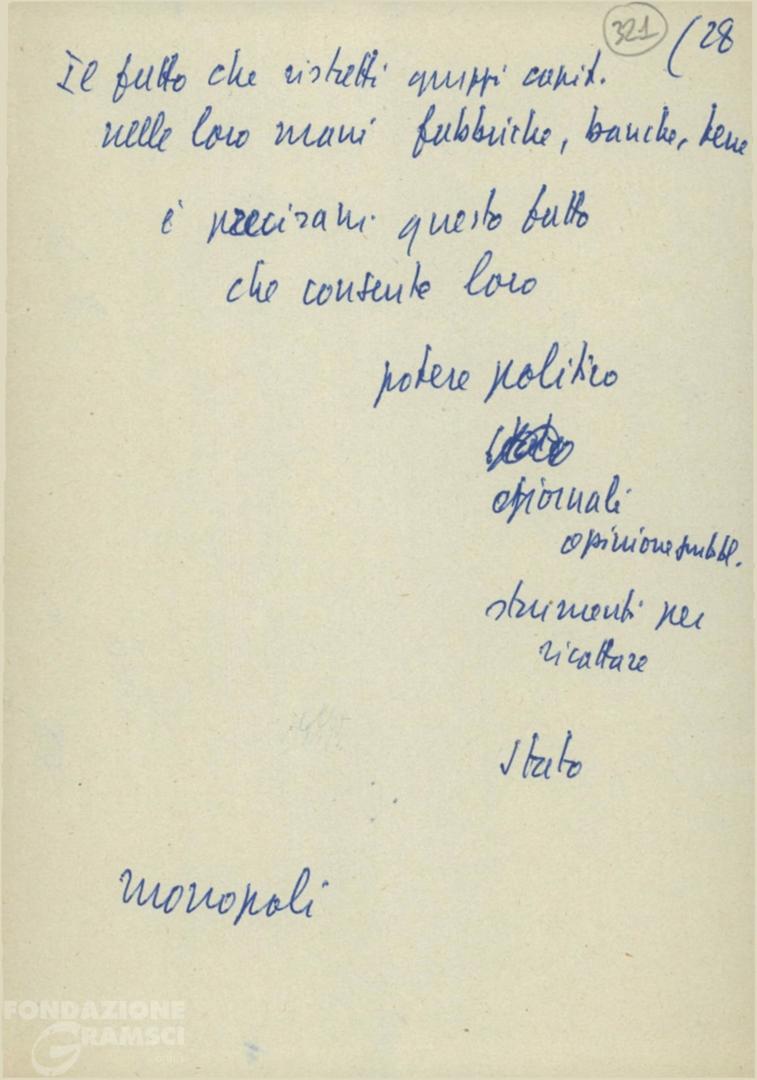 321 (28
Il fatto che ristretti gruppi capit.
nelle loro mani fabbriche, banche, terre
è precisam. questo fatto
che consente loro
potere politico
giornali
opinione pubbl.
strumenti per
ricattare
Stato
monopoli
FONDAZIONE
GRAMSCI